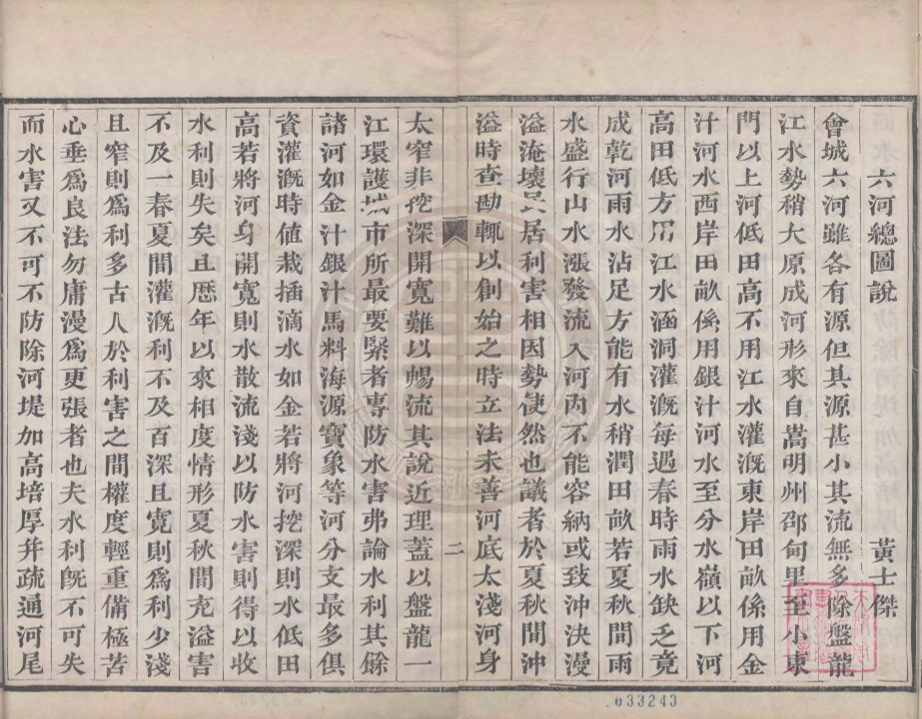 六河總圖說　黃士傑
會城六河雖各有源但其源甚小其流無多除盤龍
江水勢稍大原成河形來自嵩明州邵甸里至小東
門以上河低田高不用江水灌漑東岸田畝係用金
汁河水西岸田畝係用銀汁河水至分水嶺以下河
高田低方用江水涵洞灌漑每遇春時雨水缺乏竟
成乾河雨水沾足方能有水稍潤田畝若夏秋間雨
水盛行山水漲發流入河內不能容納或致沖決漫
溢淹壞民居利害相因勢使然也議者於夏秋間沖
溢時查勘輒以創始之時立法未善河底太淺河身
二
太窄非挖深開寬難以暢流其說近理蓋以盤龍一
江環護城市所最要緊者專防水害弗論水利其餘
諸河如金汁銀汁馬料海源寶象等河分支最多俱
資灌漑時值栽插滴水如金若將河挖深則水低田
高若將河身開寬則水散流淺以防水害則得以收
水利則失矣且歷年以來相度情形夏秋間充溢害
不及一春夏間灌漑利不及百深且寬則爲利少淺
且窄則爲利多古人於利害之間權度輕重備極苦
心垂爲良法勿庸漫爲更張者也夫水利旣不可失
而水害又不可不防除河堤加高培厚幷疏通河尾
033243